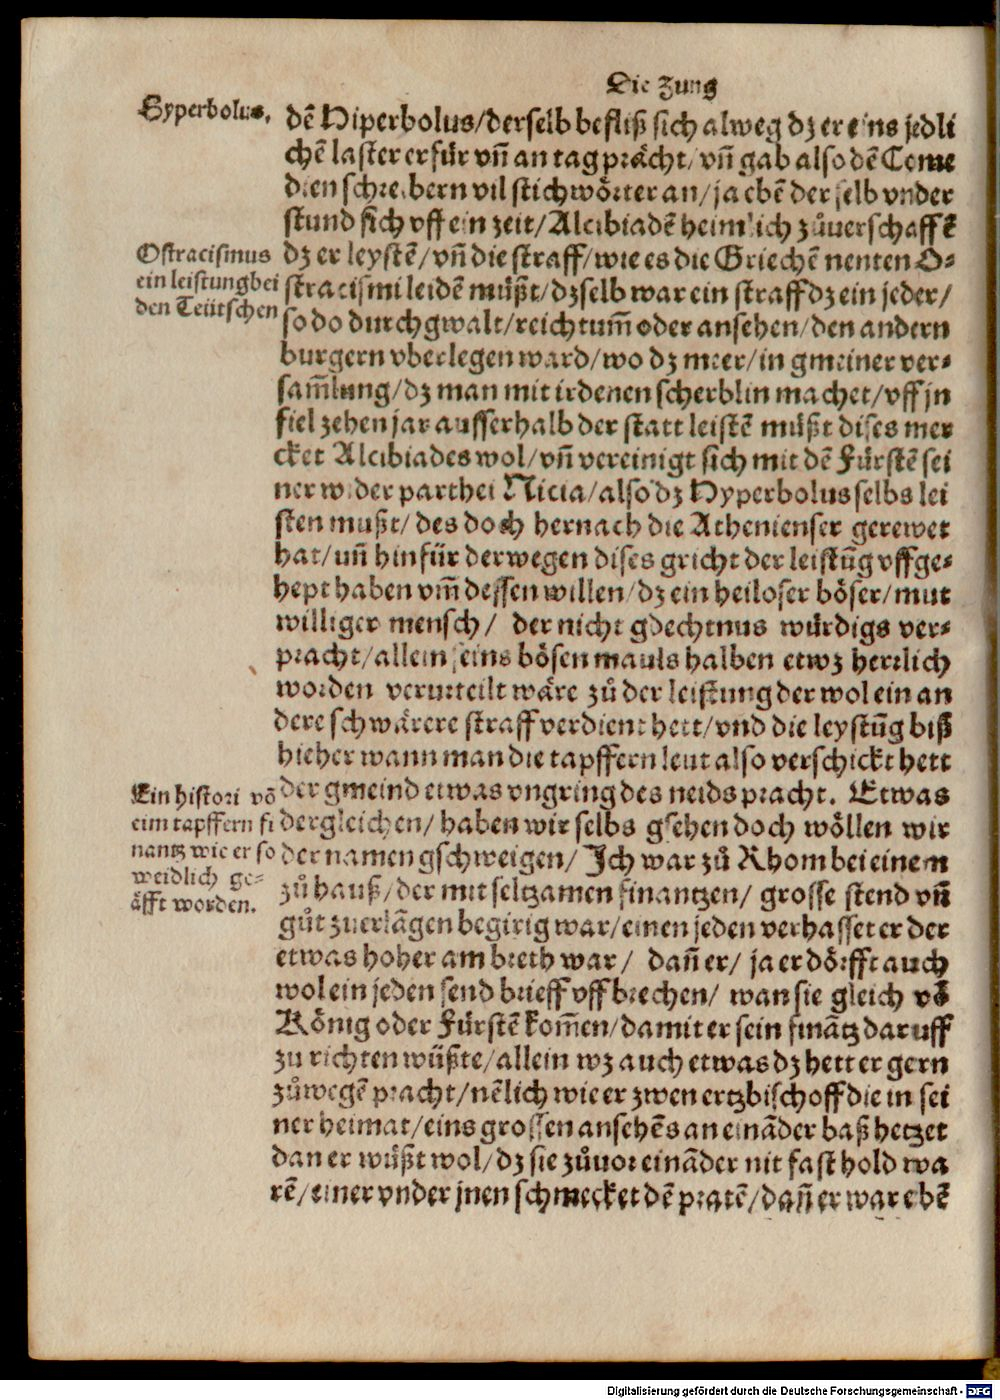 Die Zung
Hyperbolus.
dē Hiperbolus/derselb befliß sich alweg dz er eins jedli
chē laster erfür vn̄ an tag prächt/ vn̄ gab also dē Come
dien schreibern vil stichwörter an/ja ebē der selb vnder
stund sich vff ein zeit/Alcibiadē heimlich zůuerschaffē
Ostracismus
ein leistung bei
den Teütschen
dz er leystē/vn̄ die straff/wie es die Griechē nenten O⸗
stracismi leidē müßt/dzselb war ein straff dz ein jeder/
so do durch gwalt/reichtum̄ oder ansehen/den andern
burgern vberlegen ward/wo dz meer/in gmeiner ver⸗
sam̄lung/dz man mit irdenen scherblin machet/vff jn
fiel zehen jar ausserhalb der statt leistē müßt dises mer
cket Alcibiades wol/vn̄ vereinigt sich mit dē Fürstē sei
ner wider parthei Nicia/also dz Hyperbolus selbs lei
sten mußt/des doch hernach die Athenienser gerewet
hat/vn̄ hinfür derwegen dises gricht der leistūg vffge⸗
hept haben vm̄ dessen willen/dz ein heiloser böser/mut
williger mensch/ der nicht gdechtnus würdigs ver⸗
pracht/allein seins bösen mauls halben etwz herrlich
worden verurteilt wäre zů der leistung der wol ein an
dere schwärere straff verdient hett/vnd die leystūg biß
hieher wann man die tapffern leut also verschickt hett
Ein histori vō
eim tapffern fi
nantz wie er so
weidlich ge⸗
äfft worden.
der gmeind etwas vngring des neids pracht. Etwas
dergleichen/ haben wir selbs gsehen doch wöllen wir
der namen gschweigen/ Ich war zů Rhom bei einem
zů hauß/der mit seltzamen finantzen/ grosse stend vn̄
gůt zuerlāgen begirig war/einen jeden verhasset er der
etwas hoher am breth war/ dan̄ er/ ja er dörfft auch
wol ein jeden send brieff vff brechen/ wan sie gleich vō
König oder Fürstē kom̄en/damit er sein finātz daruff
zu richten wüßte/allein wz auch etwas dz hett er gern
zůwegē pracht/nēlich wie er zwen ertzbischoff die in sei
ner heimat/eins grossen ansehēs an eināder baß hetzet
dan er wüßt wol/dz sie zůuor eināder nit fast hold wa
rē/einer vnder jnen schmecket dē pratē/dan̄ er war ebē
Digitalisierung gefördert durch die Deutsche Forschungsgemeinschaft - DFG